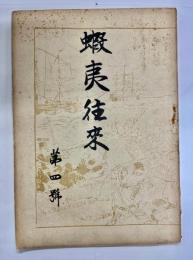 蝦夷往來
第四號